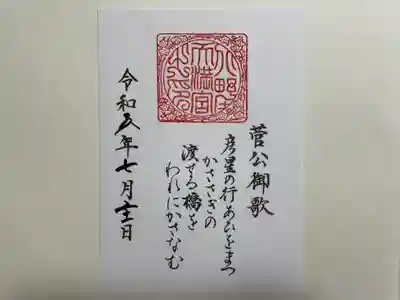 菅公御歌
彦星の行あひをまつ
かささぎの
渡せる橋を
われにかさなむ
令和五年七月十三日
北野天満宮